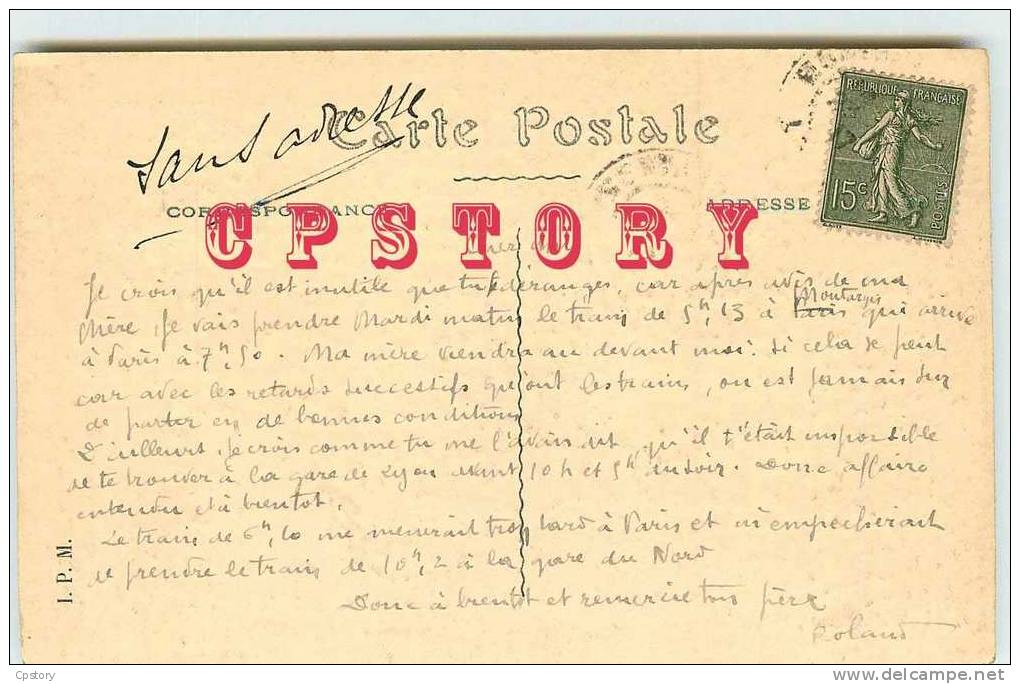 Sans adresse
Carte Postale
REPUBLIQUE FRANÇAISE
15c
POSTES
CORRESPONDANCE
ADRESSE
CPSTORY
Je crois qu'il est inutile que tu déranges, car après avis de ma
Montargis
Mère, je vais prendre Mardi matin le train de 5h,13 à Paris qui arrive
à Paris à 7h,50. Ma mère viendra au devant moi. Si cela se peut
car avec les retards successifs qu'ont les trains, on est jamais sur
de partir en de bonnes conditions
D'ailleurs, je crois comme tu me l'avais dit, qu'il t'était impossible
de te trouver à la gare de Lyon avant 10h et 5h du soir. Donc affaire
entendu et à bientôt.
Le train de 6h,10 me menerait trop tard à Paris et m'empecherait
de prendre le train de 10h,2 à la gare du Nord
Donc à bientot et remercie ton père
Roland
I. P. M.
Cpstory
www.delcampe.net